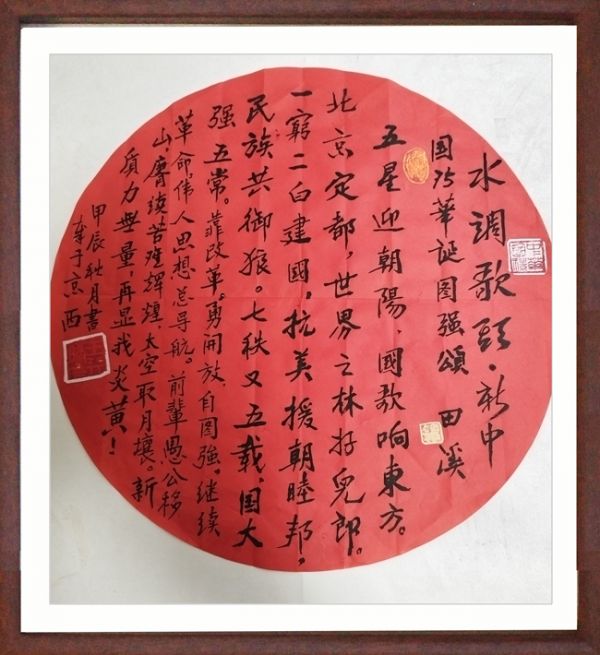 水調歌頭·新中
国75华诞图强頌 田溪
五星迎朝陽,國歌响東方。
北京定都,世界之林好兒郎。
一窮二白建國,抗美援朝睦邦,
民族共御狼。七秩又五載,国大
强五常。 改革。勇開放,自图強。继续
革命,伟人思想总导航。前輩愚公移
山,賡续苦难辉煌,太空取月壤。新
质力無量,再显我炎黄!
甲辰秋月書
于京西